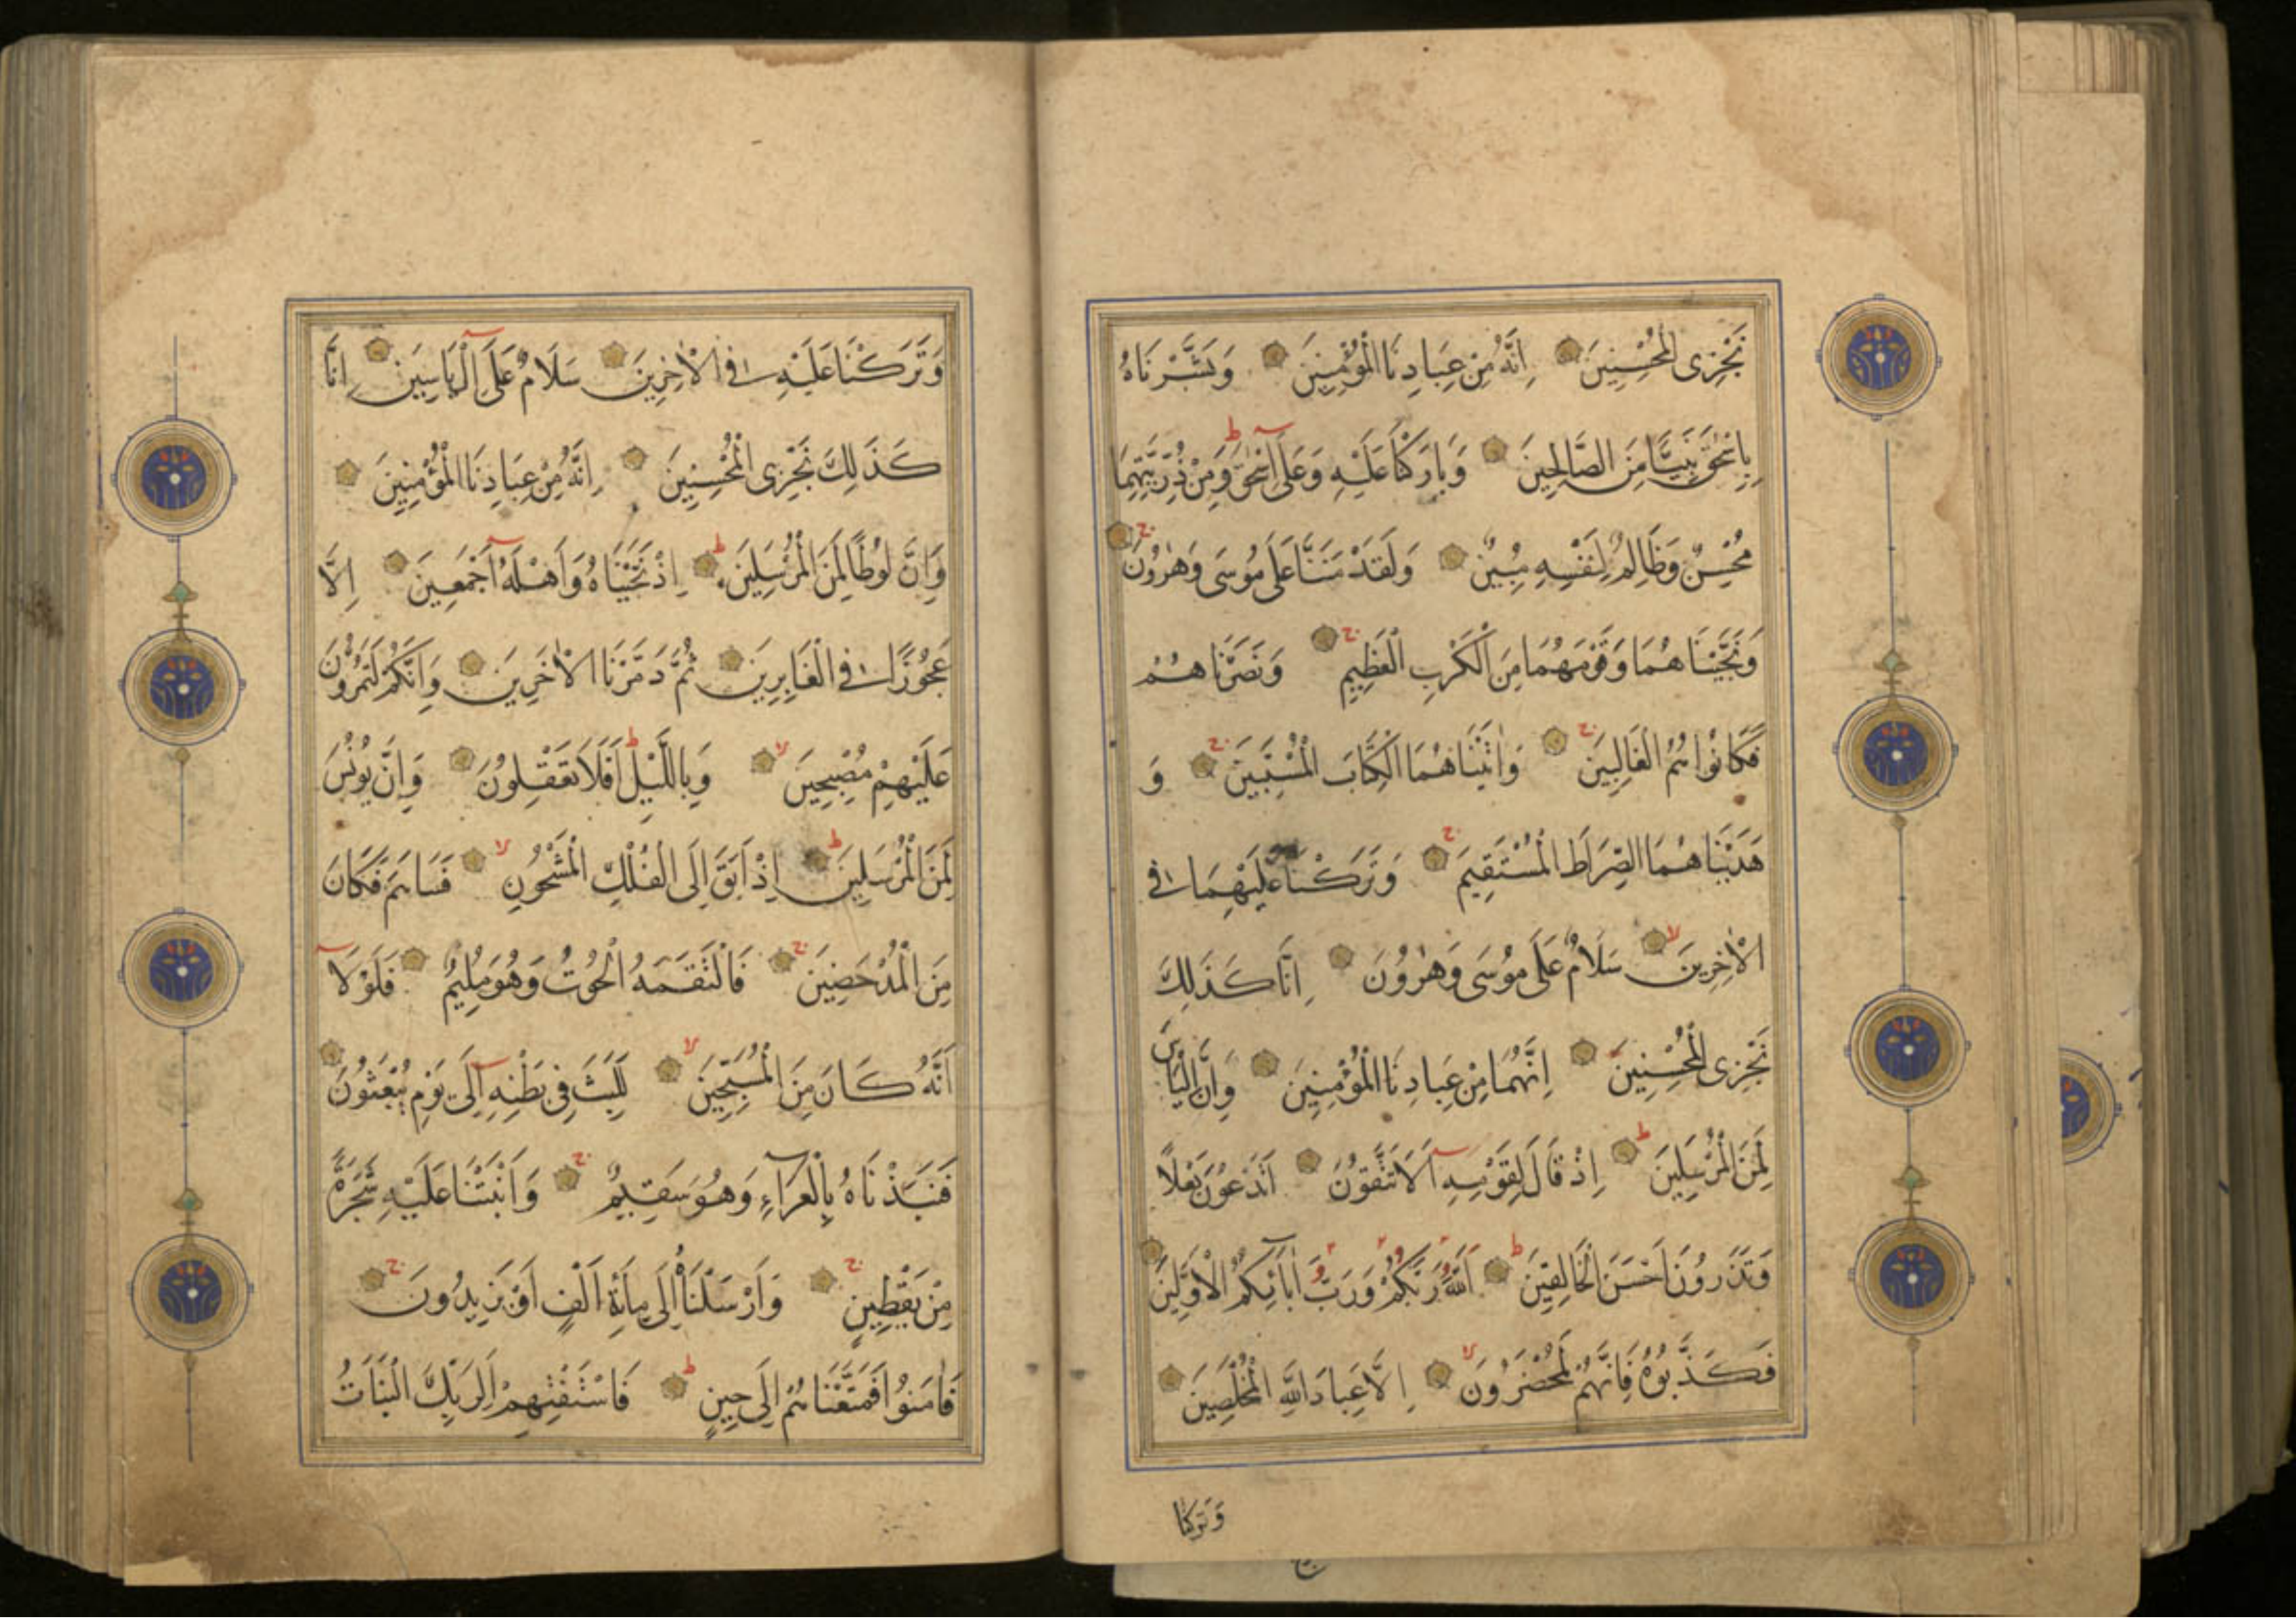 نَجْزِى الْمُحْسِنِينَ اِنَّهُ مِنْ عِبَادِنَا الْمُؤْمِنِينَ وَبَشَّرْنَاهُ
بِاِسْحٰقَ نَبِيًّا مِنَ الصَّالِحِينَ وَبَارَكْنَا عَلَيْهِ وَعَلَى اِسْحٰقَ وَمِنْ ذُرِّيَّتِهِمَا
مُحْسِنٌ وَظَالِمٌ لِنَفْسِهِ مُبِينٌ وَلَقَدْ مَنَنَّا عَلَى مُوسَى وَهٰرُونَ
وَنَجَّيْنَاهُمَا وَقَوْمَهُمَا مِنَ الْكَرْبِ الْعَظِيمِ وَنَصَرْنَاهُمْ
فَكَانُوا هُمُ الْغَالِبِينَ وَاٰتَيْنَاهُمَا الْكِتَابَ الْمُسْتَبِينَ وَ
هَدَيْنَاهُمَا الصِّرَاطَ الْمُسْتَقِيمَ وَتَرَكْنَا عَلَيْهِمَا فِى
الْاٰخِرِينَ سَلَامٌ عَلَى مُوسَى وَهٰرُونَ اِنَّا كَذَلِكَ
نَجْزِى الْمُحْسِنِينَ اِنَّهُمَا مِنْ عِبَادِنَا الْمُؤْمِنِينَ وَاِنَّ اِلْيَاسَ
لَمِنَ الْمُرْسَلِينَ اِذْ قَالَ لِقَوْمِهِ اَلَا تَتَّقُونَ اَتَدْعُونَ بَعْلًا
وَتَذَرُونَ اَحْسَنَ الْخَالِقِينَ اَللّٰهُ رَبُّكُمْ وَرَبُّ اٰبَائِكُمُ الْاَوَّلِينَ
فَكَذَّبُوهُ فَاِنَّهُمْ لَمُحْضَرُونَ اِلَّا عِبَادَ اللّٰهِ الْمُخْلَصِينَ
وَتَرَكْنَا
وَتَرَكْنَا عَلَيْهِ فِى الْاٰخِرِينَ سَلَامٌ عَلَى اِلْ يَاسِينَ اِنَّا
كَذَلِكَ نَجْزِى الْمُحْسِنِينَ اِنَّهُ مِنْ عِبَادِنَا الْمُؤْمِنِينَ
وَاِنَّ لُوطًا لَمِنَ الْمُرْسَلِينَ اِذْ نَجَّيْنَاهُ وَاَهْلَهُ اَجْمَعِينَ اِلَّا
عَجُوزًا فِى الْغَابِرِينَ ثُمَّ دَمَّرْنَا الْاٰخَرِينَ وَاِنَّكُمْ لَتَمُرُّونَ
عَلَيْهِمْ مُصْبِحِينَ وَبِاللَّيْلِ اَفَلَا تَعْقِلُونَ وَاِنَّ يُونُسَ
لَمِنَ الْمُرْسَلِينَ اِذْ اَبَقَ اِلَى الْفُلْكِ الْمَشْحُونِ فَسَاهَمَ فَكَانَ
مِنَ الْمُدْحَضِينَ فَالْتَقَمَهُ الْحُوتُ وَهُوَ مُلِيمٌ فَلَوْلَا
اَنَّهُ كَانَ مِنَ الْمُسَبِّحِينَ لَلَبِثَ فِى بَطْنِهِ اِلَى يَوْمِ يُبْعَثُونَ
فَنَبَذْنَاهُ بِالْعَرَاءِ وَهُوَ سَقِيمٌ وَاَنْبَتْنَا عَلَيْهِ شَجَرَةً
مِنْ يَقْطِينٍ وَاَرْسَلْنَاهُ اِلَى مِائَةِ اَلْفٍ اَوْ يَزِيدُونَ
فَاٰمَنُوا فَمَتَّعْنَاهُمْ اِلَى حِينٍ فَاسْتَفْتِهِمْ اَلِرَبِّكَ الْبَنَاتُ